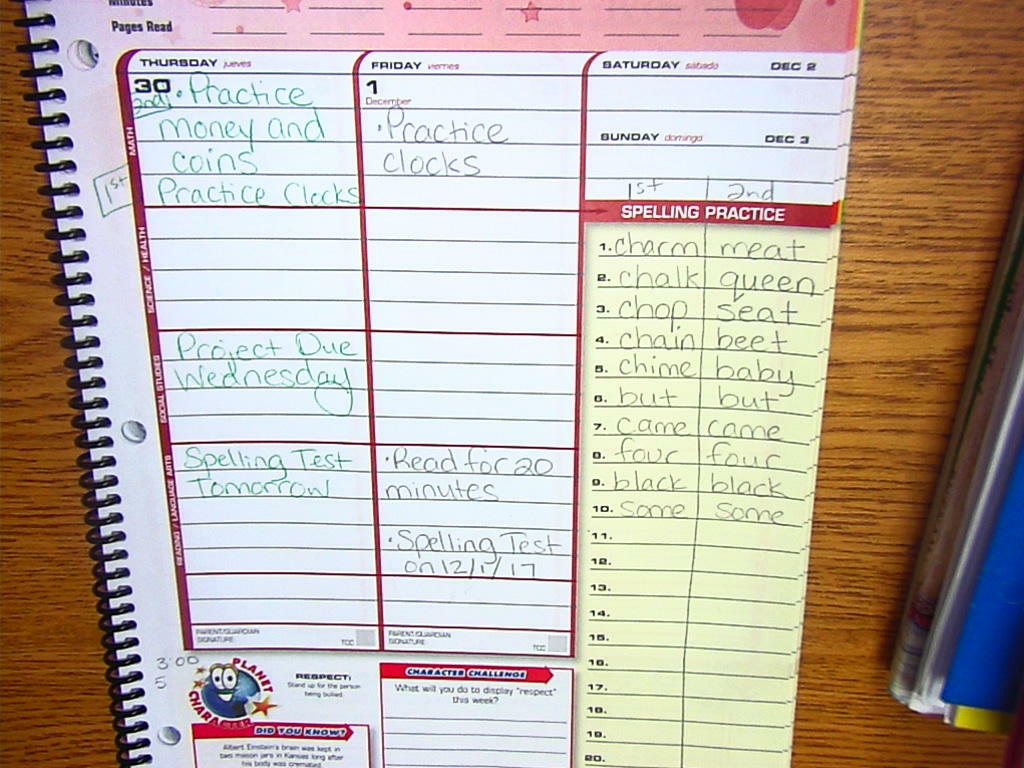 Minutes
Pages Read
THURSDAY jueves
30
2nd
• Practice
money and
coins
1st
Practice Clocks
Project Due
Wednesday
Spelling Test
Tomorrow
PARENT/GUARDIAN
SIGNATURE:
TCC
FRIDAY viernes
1
December
• Practice
clocks
• Read for 20
minutes
• Spelling Test
on 12/1/17
PARENT/GUARDIAN
SIGNATURE:
TCC
SATURDAY sábado DEC 2
SUNDAY domingo DEC 3
1st 2nd
SPELLING PRACTICE
1. charm meat
2. chalk queen
3. chop seat
4. chain beet
5. chime baby
6. but but
7. came came
8. four four
9. black black
10. some some
11.
12.
13.
14.
15.
16.
17.
18.
19.
20.
MATH
SCIENCE / HEALTH
SOCIAL STUDIES
READING / LANGUAGE ARTS
3:00
5
PLANET
CHARACTER
RESPECT:
Stand up for the person
being bullied.
DID YOU KNOW?
Albert Einstein's brain was kept in
two mason jars in Kansas long after
his body was cremated.
CHARACTER CHALLENGE
What will you do to display "respect"
this week?